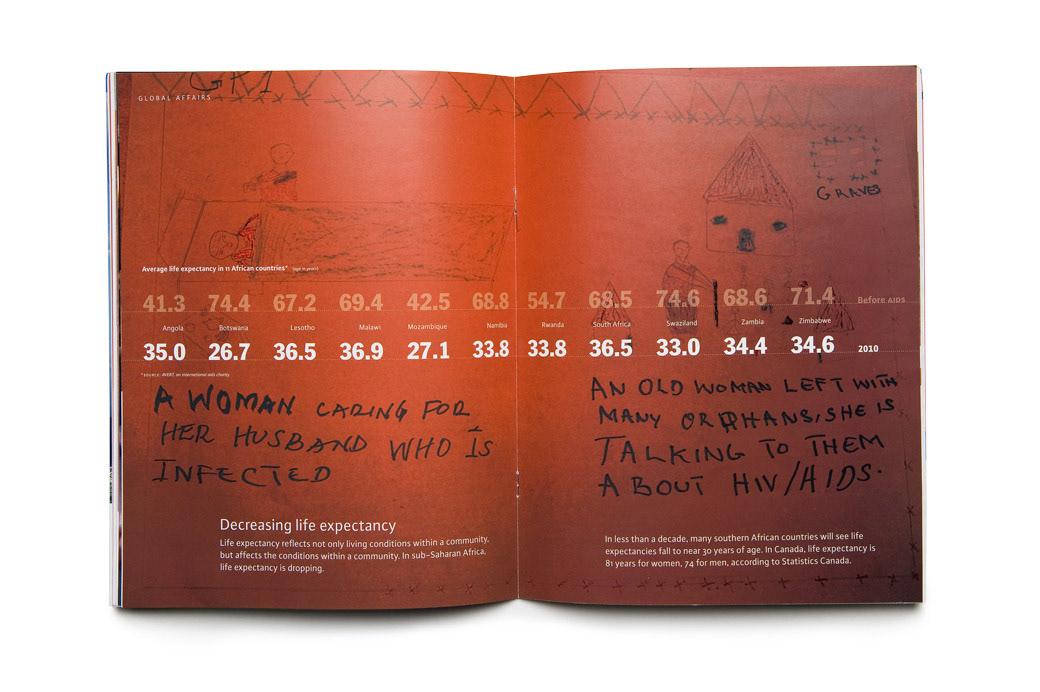 GR1
GLOBAL AFFAIRS
GRAVES
Average life expectancy in 11 African countries* (age in years)
41.3 74.4 67.2 69.4 42.5 68.8 54.7 68.5 74.6 68.6 71.4 Before AIDS
Angola Botswana Lesotho Malawi Mozambique Namibia Rwanda South Africa Swaziland Zambia Zimbabwe
35.0 26.7 36.5 36.9 27.1 33.8 33.8 36.5 33.0 34.4 34.6 2010
*SOURCE: AVERT, an international AIDS charity
A WOMAN CARING FOR
HER HUSBAND WHO IS
INFECTED
Decreasing life expectancy
Life expectancy reflects not only living conditions within a community,
but affects the conditions within a community. In sub-Saharan Africa,
life expectancy is dropping.
AN OLD WOMAN LEFT WITH
MANY ORPHANS, SHE IS
TALKING TO THEM
ABOUT HIV/AIDS.
In less than a decade, many southern African countries will see life
expectancies fall to near 30 years of age. In Canada, life expectancy is
81 years for women, 74 for men, according to Statistics Canada.